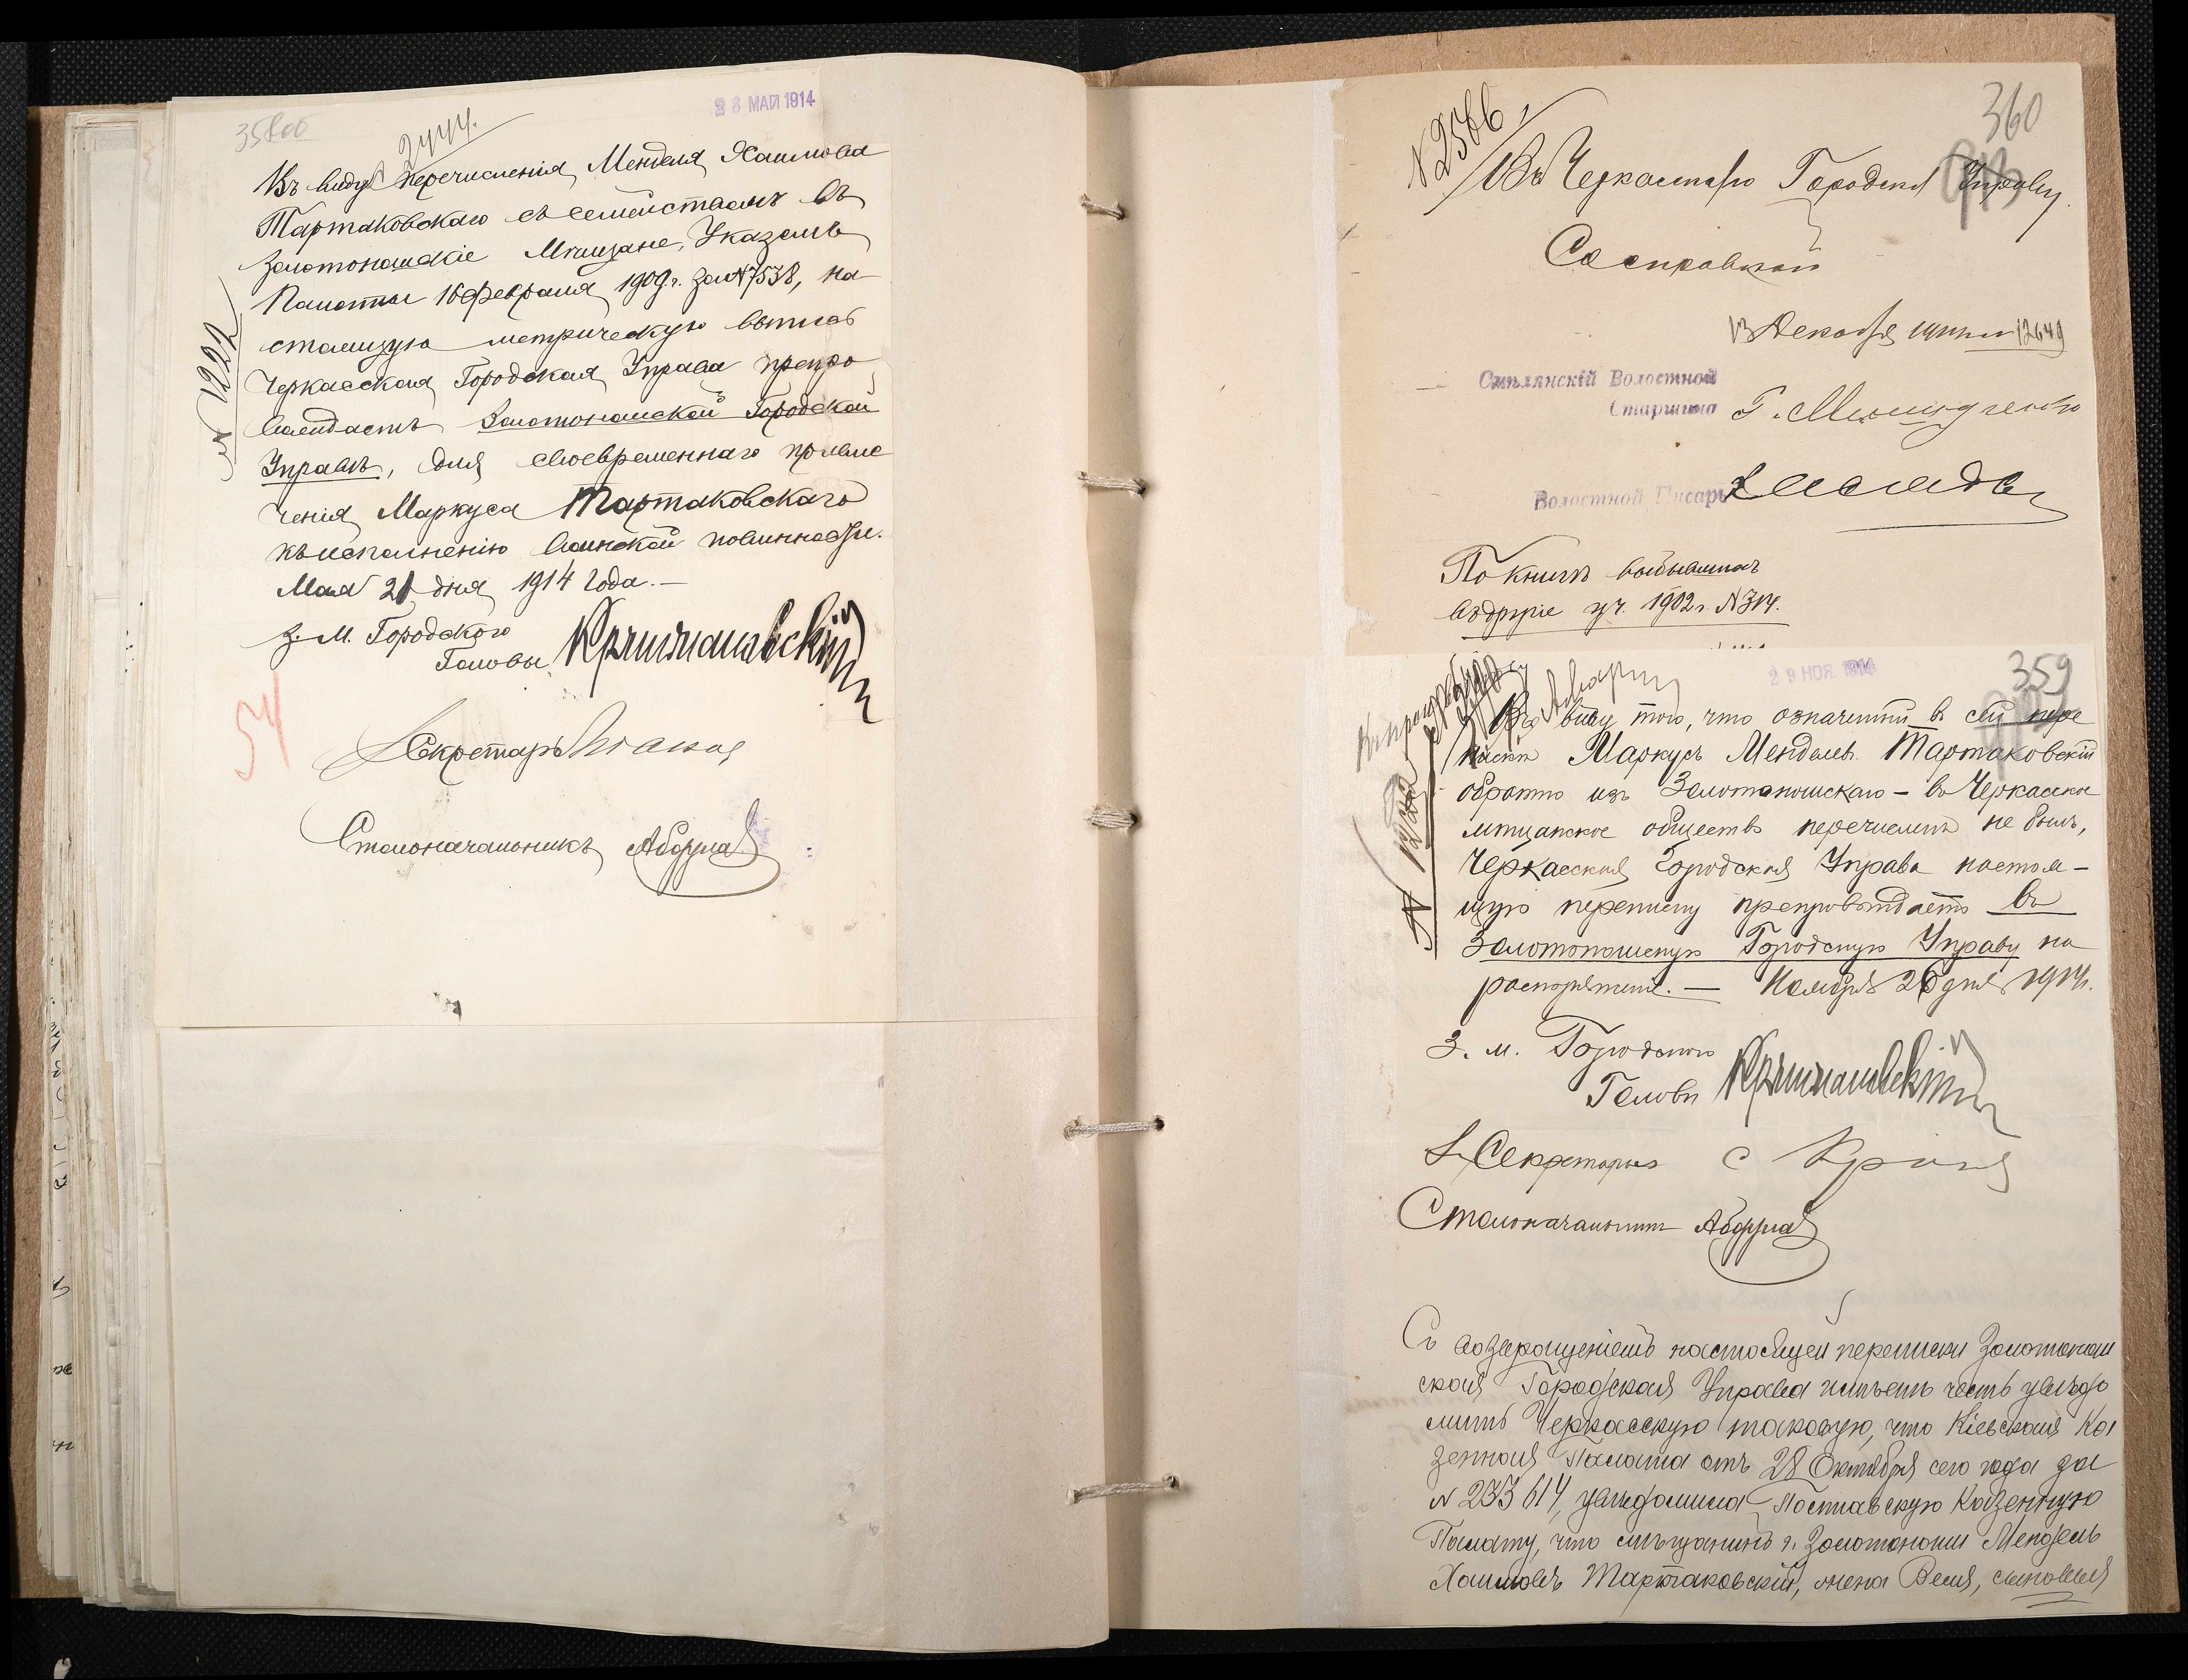 28 МАЙ 1914
358 об
2444.
Въ виду перечисленія Менделя Хаимова
Тартаковскаго съ семействомъ въ
Золотоношскіе Мѣщане, Указомъ
Палаты 16 февраля 1909 г. за № 7538, на-
стоящую метрическую выпись
Черкасская Городская Управа препро
вождаетъ Золотоношской Городской
Управѣ, для своевременнаго привле
ченія Маркуса Тартаковскаго
къ исполненію воинской повинности.
Мая 21 дня 1914 года.—
№ 1222
З. М. Городского
Головы
54
Секретарь
Столоначальникъ
360
№ 2566
Въ Черкасскую Городск Управу.
Со справкой
13 Декабря 12649
Смѣлянскій Волостной
Старшина
Волостной Писарь
По книгѣ
1902 г. № 314.
29 НОЯ. 1914
359
Въ виду того, что означенный въ сей пере
пискѣ Маркусъ Менделевъ Тартаковскій
обратно изъ Золотоношскаго – въ Черкасское
мѣщанское общество перечисленъ не былъ,
Черкасская Городская Управа настоя-
щую переписку препровождаетъ въ
Золотоношскую Городскую Управу на
распоряженіе. — Ноября 26 дня 1914 г.
З. м. Городского
Головы
Секретарь
Столоначальникъ
Съ возвращеніемъ настоящей переписки Золотонош
ская Городская Управа имѣетъ честь увѣдо
мить Черкасскую таковую, что Кіевская Ка
зенная Палата отъ 28 Октября сего года за
№ 233614, увѣдомила Полтавскую Казенную
Палату, что мѣщанинъ г. Золотоноши Мендель
Хаимовъ Тартаковскій, жена Веля, сыновья